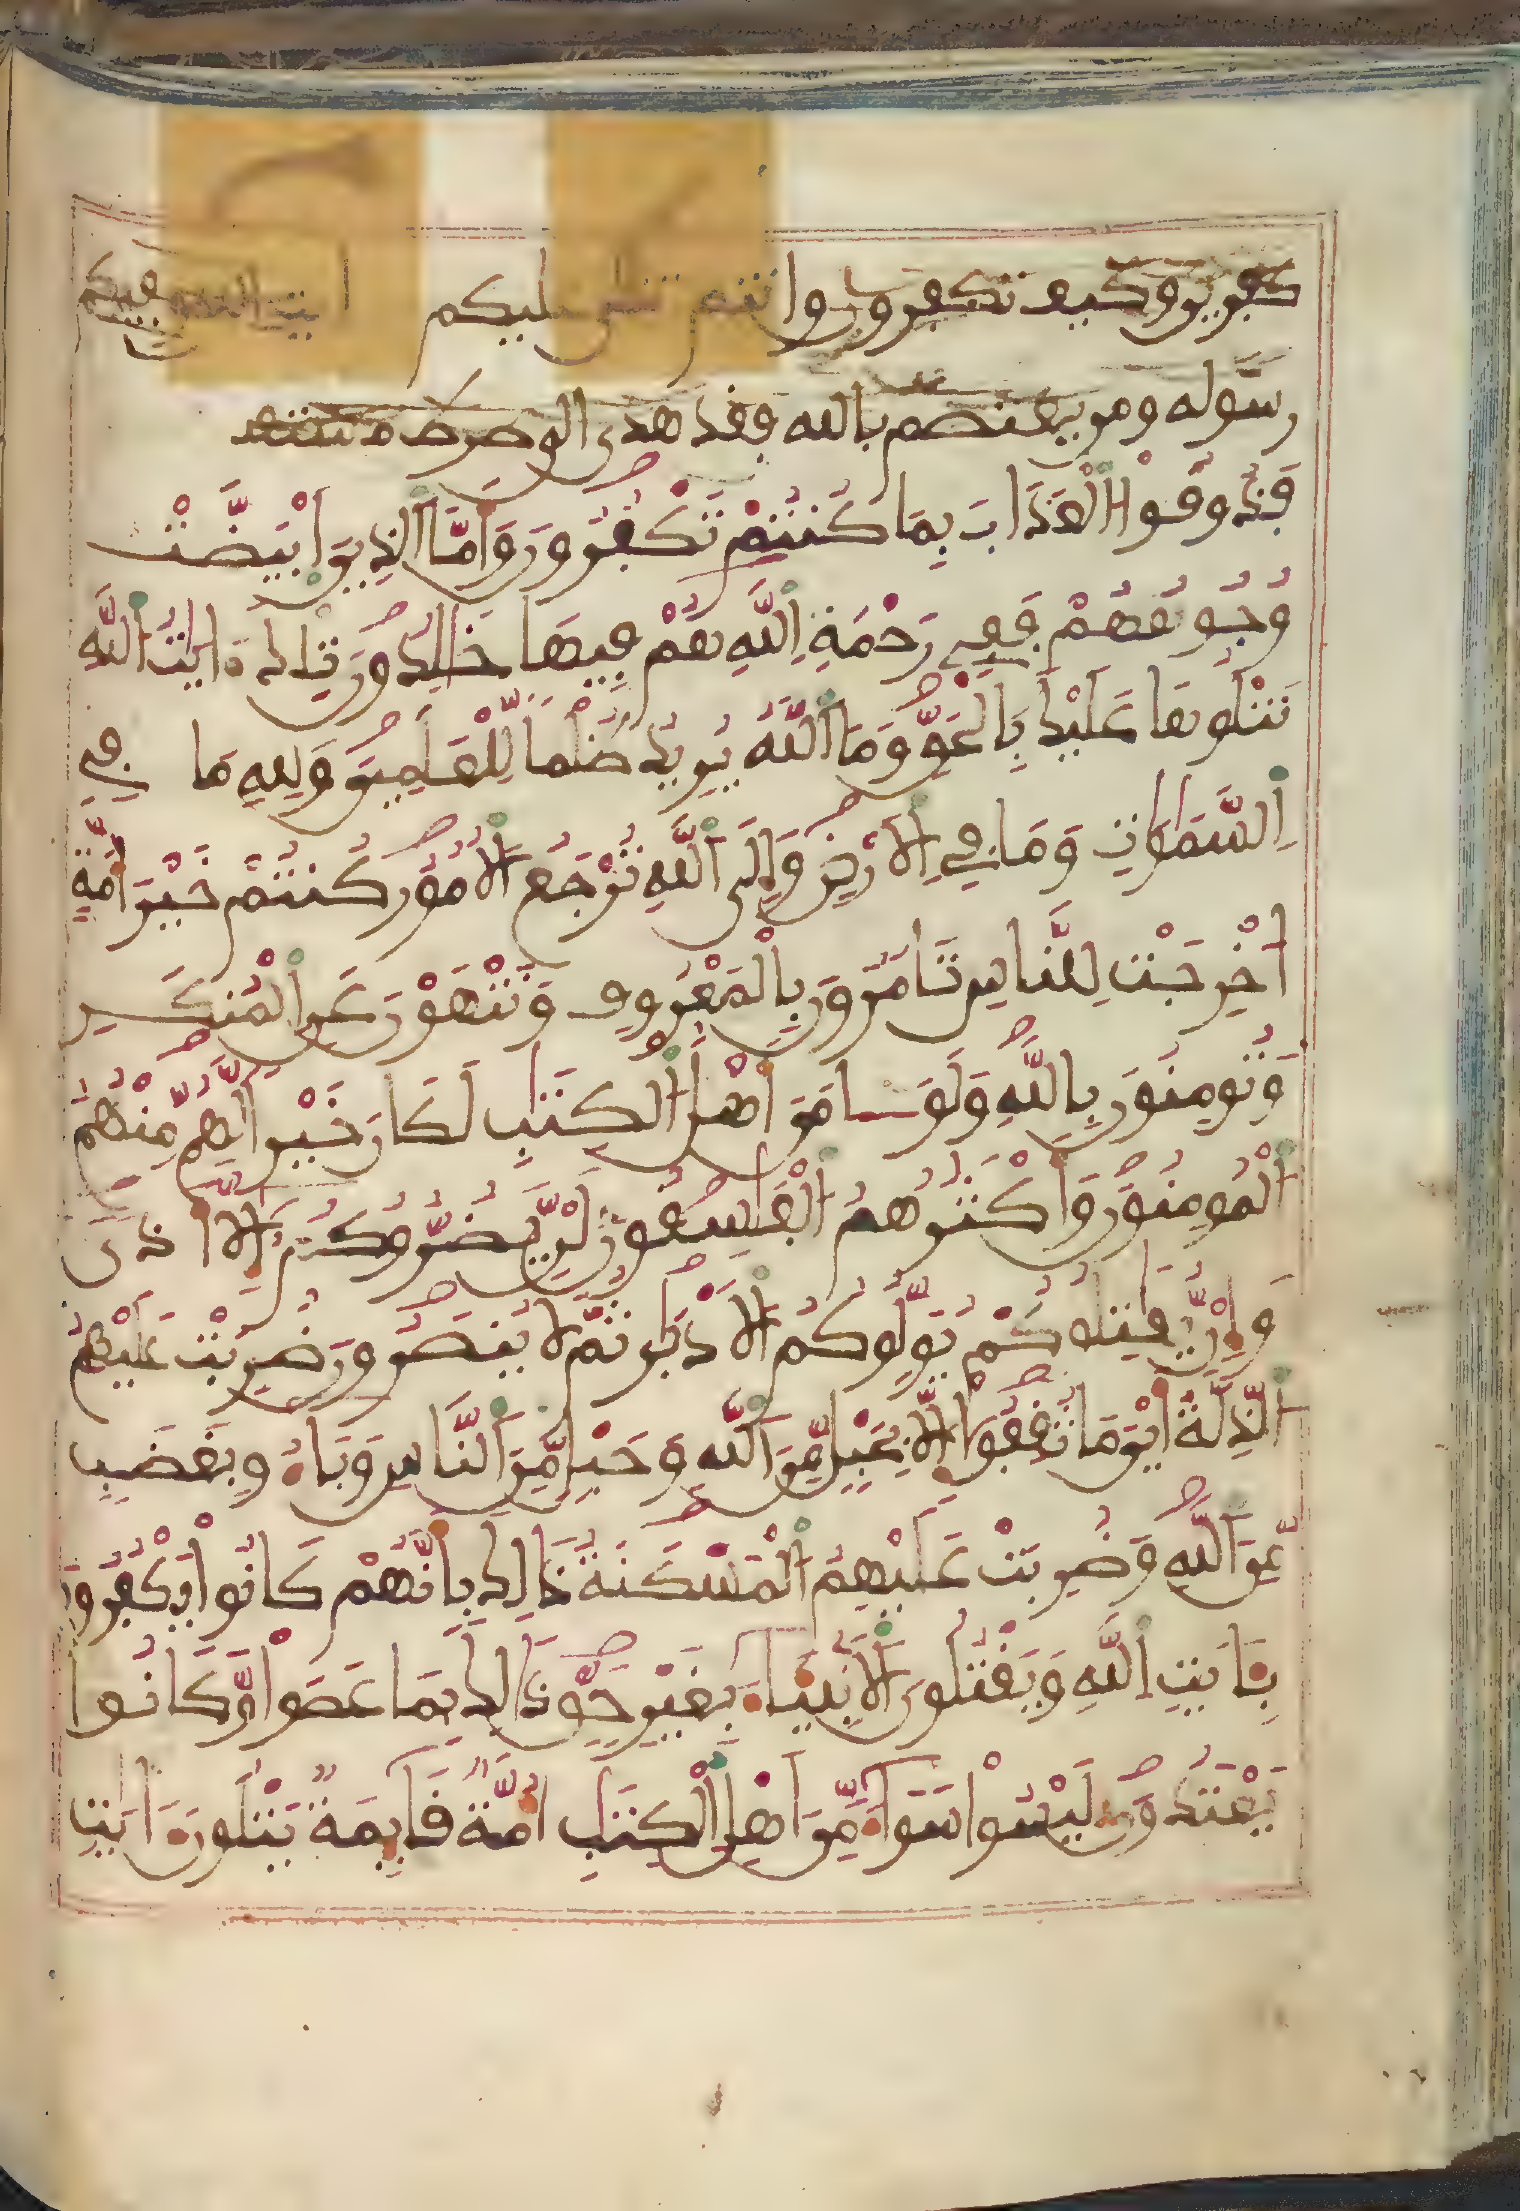 كفرين وكيف تكفرون وانتم تتلى عليكم ايت الله فيكم
رسوله ومن يعتصم بالله فقد هدى الى صرط مستقيم
فَذُوقُوا الْعَذَابَ بِمَا كُنتُمْ تَكْفُرُونَ وَأَمَّا الذِينَ ابْيَضَّتْ
وُجُوهُهُمْ فَفِي رَحْمَةِ اِللَّهِ هُمْ فِيهَا خَلِدُونَ تِلْكَ ءَايَتُ اُللَّهِ
نَتْلُوهَا عَلَيْكَ بِالْحَقِّ وَمَا اَللَّهُ يُرِيدُ ظُلْماً لِّلْعَلَمِينَ وَلِلهِ مَا فِي
اِلسَّمَٰوَٰتِ وَمَا فِي اِلَارْضِ وَإِلَى اَللَّهِ تُرْجَعُ اُلُامُورُ كُنتُمْ خَيْرَ أُمَّةٍ
اُخْرِجَتْ لِلنَّاسِ تَامُرُونَ بِالْمَعْرُوفِ وَتَنْهَوْنَ عَنِ اِلْمُنكَرِ
وَتُومِنُونَ بِاللَّهِ وَلَوَ امَنَ أَهْلُ اُلْكِتَبِ لَكَانَ خَيْراً لَّهُم مِّنْهُمُ
اُلْمُومِنُونَ وَأَكْثَرُهُمُ اُلْفَسِقُونَ لَنْ يَّضُرُّوكُمُ إِلَّا أَذىً
وَإِنْ يُّقَتِلُوكُمْ يُوَلُّوكُمُ اُلَادْبَرَ ثُمَّ لَا يُنصَرُونَ ضُرِبَتْ عَلَيْهِمُ
اُلذِّلَّةُ أَيْنَمَا ثُقِفُوا إِلَّا بِحَبْلٍ مِّنَ اَللَّهِ وَحَبْلٍ مِّنَ اَلنَّاسِ وَبَاءُو بِغَضَبٍ
مِّنَ اَللَّهِ وَضُرِبَتْ عَلَيْهِمُ اُلْمَسْكَنَةُ ذَالِكَ بِأَنَّهُمْ كَانُوا يَكْفُرُونَ
بِـَٔايَتِ اِللَّهِ وَيَقْتُلُونَ اَلَانبِيَاءَ بِغَيْرِ حَقٍّ ذَالِكَ بِمَا عَصَوا وَّكَانُوا
يَعْتَدُونَ لَيْسُوا سَوَاءً مِّنَ اَهْلِ اِلْكِتَبِ أُمَّةٌ قَايِمَةٌ يَتْلُونَ ءَايَتِ